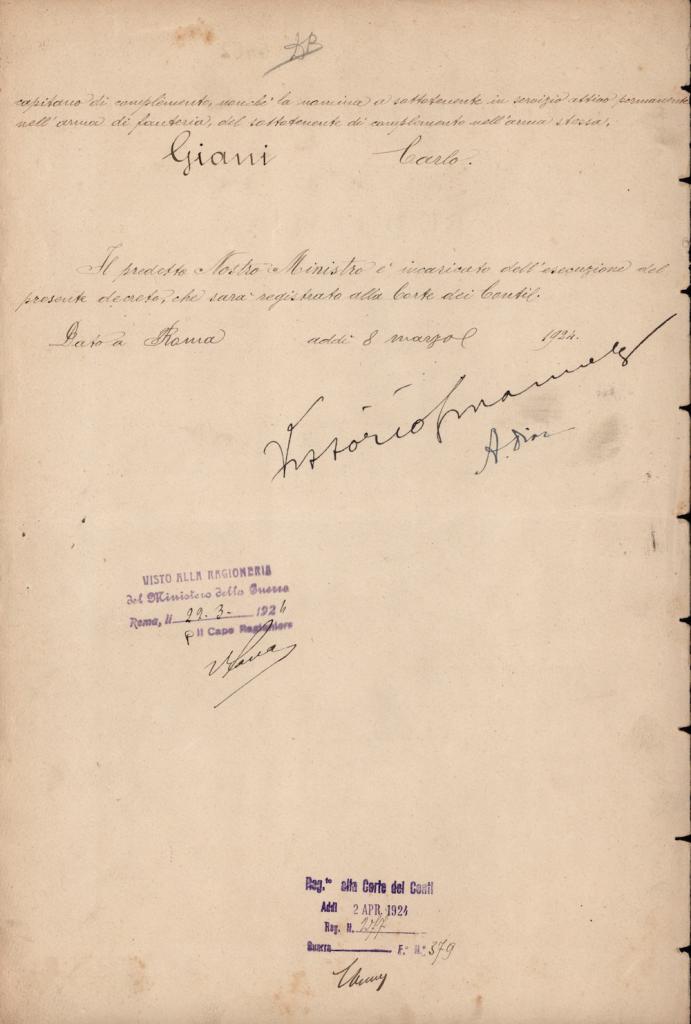 capitano di complemento, nonchè la nomina a sottotenente in servizio attivo permanente
nell'arma di fanteria, del sottotenente di complemento nell'arma stessa,
Giani Carlo.
Il predetto Nostro Ministro è incaricato dell'esecuzione del
presente decreto, che sarà registrato alla Corte dei Conti.
Dato a Roma addì 8 marzo 1924.
Vittorio Emanuele
A. Diaz
VISTO ALLA RAGIONERIA
del Ministero della Guerra
Roma, li 29.3. 1924
p Il Capo Ragioniere
Reg.to alla Corte dei Conti
Addì 2 APR. 1924
Reg. N. 277
Guerra F.° N.° 379